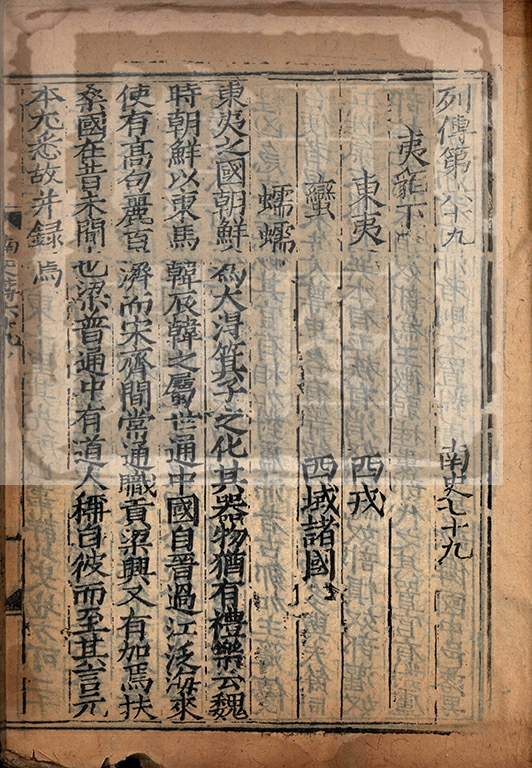 列傳第六十九 南史七十九
夷貊下
東夷 西戎
蠻 西域諸國
蠕蠕
東夷之國朝鮮為大淂箕子之化其器物猶有禮樂云魏
時朝鮮以東馬韓辰韓之屬世通中國自晋過江泛海來
使有高句麗百濟而宋齊間常通職貢梁興又有加焉扶
桑國在昔未聞也梁普通中有道人稱自彼而至其言元
本尤悉故并録焉